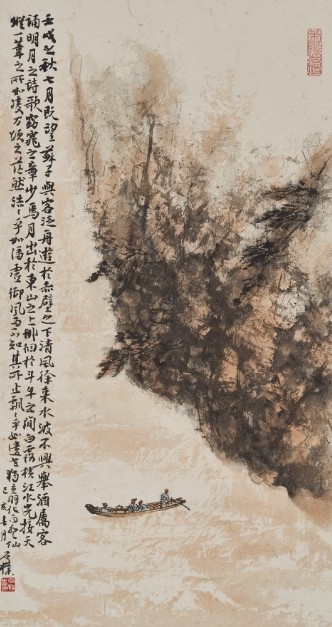 壬戌之秋七月既望蘇子與客泛舟遊於赤壁之下清風徐來水波不興舉酒屬客
誦明月之詩歌窈窕之章少焉月出於東山之上徘徊於斗牛之間白露橫江水光接天
縱一葦之所如凌万頃之茫然浩浩乎如馮虛御風而不知其所止飄飄乎如遺世獨立羽化而登仙